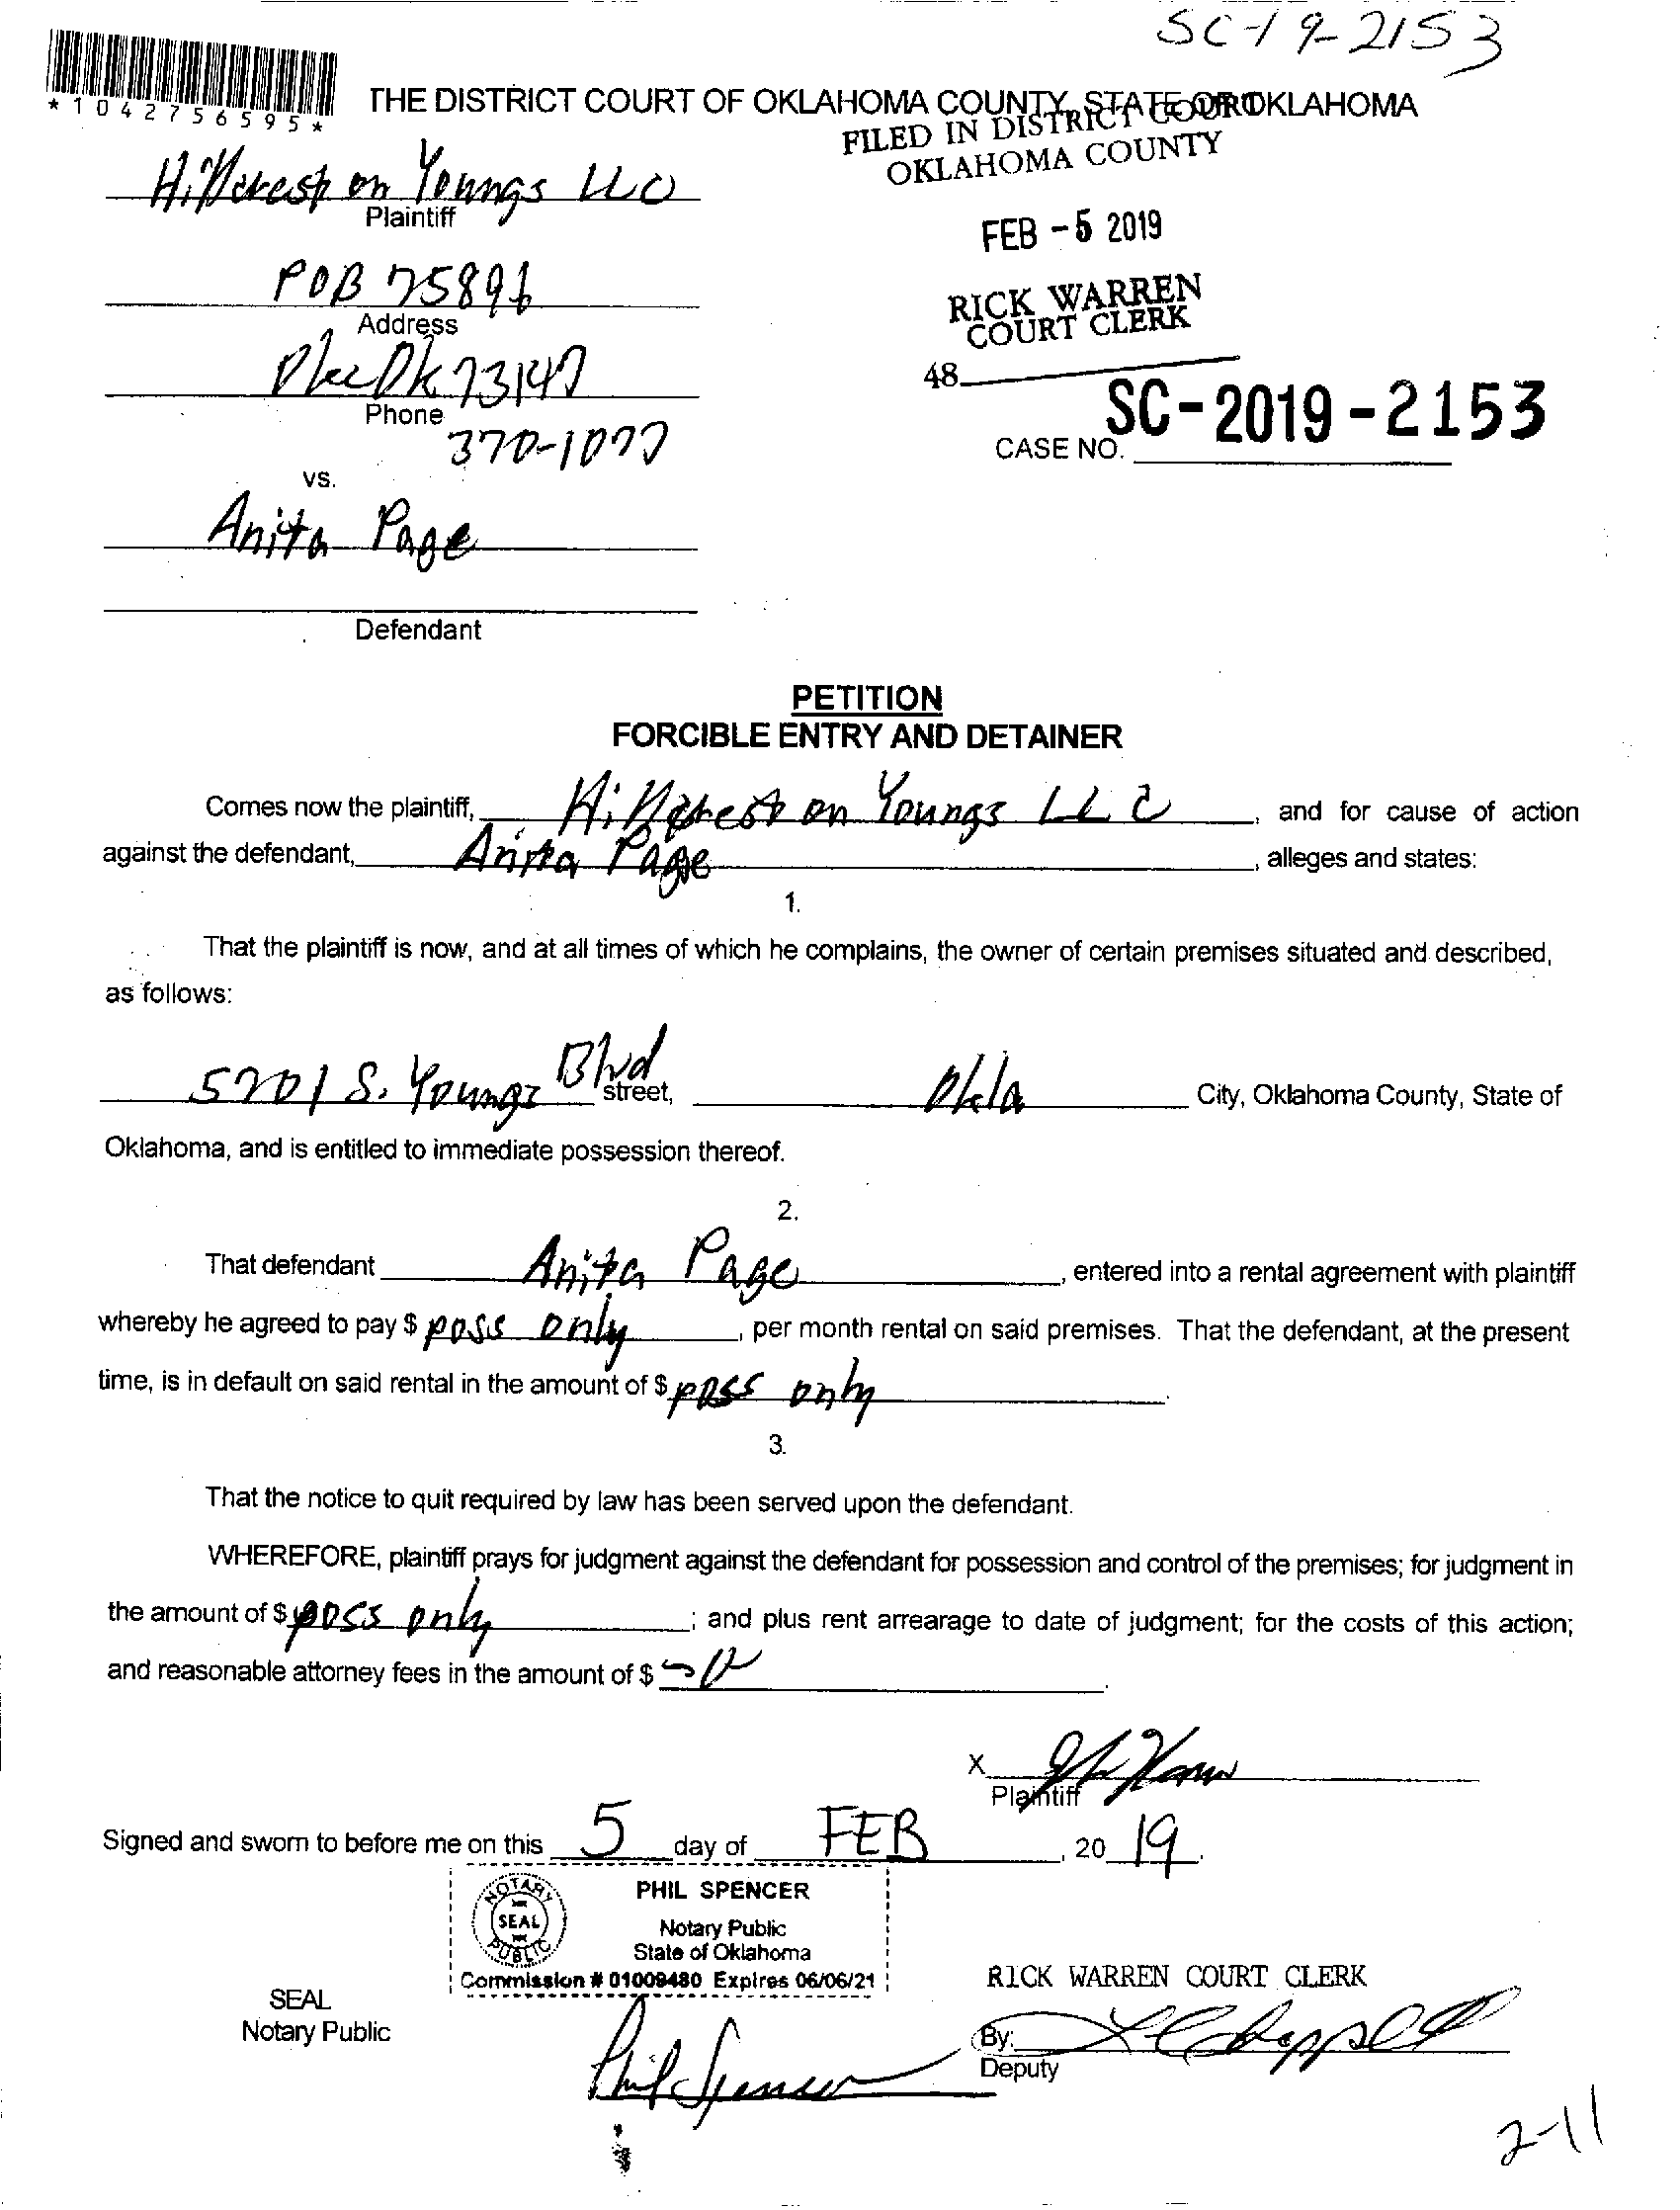 SC-19-2153
*1042756595*
THE DISTRICT COURT OF OKLAHOMA COUNTY, STATE OF OKLAHOMA
FILED IN DISTRICT COURT
OKLAHOMA COUNTY
Hillcrest on Youngs LLC
Plaintiff
FEB -5 2019
POB 75891
Address
RICK WARREN
COURT CLERK
Okc Ok 73147
48
Phone
370-1077
CASE NO. SC-2019-2153
vs.
Anita Page
Defendant
PETITION
FORCIBLE ENTRY AND DETAINER
Comes now the plaintiff, Hillcrest on Youngs LLC, and for cause of action
against the defendant, Anita Page, alleges and states:
1.
That the plaintiff is now, and at all times of which he complains, the owner of certain premises situated and described,
as follows:
5701 S. Youngs Blvd street, Okla City, Oklahoma County, State of
Oklahoma, and is entitled to immediate possession thereof.
2.
That defendant Anita Page, entered into a rental agreement with plaintiff
whereby he agreed to pay $ poss only, per month rental on said premises. That the defendant, at the present
time, is in default on said rental in the amount of $ poss only.
3.
That the notice to quit required by law has been served upon the defendant.
WHEREFORE, plaintiff prays for judgment against the defendant for possession and control of the premises; for judgment in
the amount of $ poss only; and plus rent arrearage to date of judgment; for the costs of this action;
and reasonable attorney fees in the amount of $
X
Plaintiff
Signed and sworn to before me on this 5 day of FEB, 20 19.
NOTARY PUBLIC SEAL
PHIL SPENCER
Notary Public
State of Oklahoma
Commission # 01009480 Expires 06/06/21
RICK WARREN COURT CLERK
SEAL
Notary Public
Phil Spencer
By:
Deputy
2-11